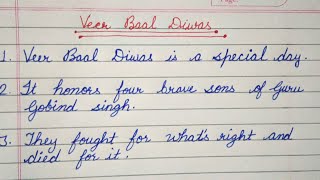 Veer Baal Diwas
1. Veer Baal Diwas is a special day.
2. It honors four brave sons of Guru
Gobind singh.
3. They fought for what's right and
died for it.